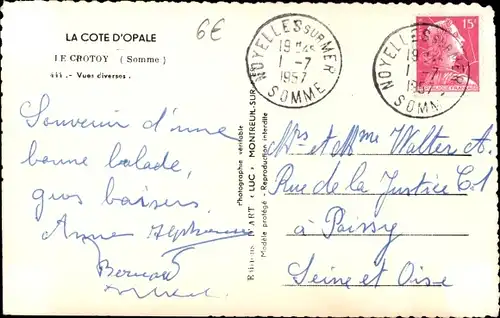 LA COTE D'OPALE
LE CROTOY (Somme)
Vues diverses.
6€
Souvenir d'une
bonne balade,
gros baisers.
Anne Alphonse
Bernard
Photographie véritable
Editions d'ART "LUC", MONTREUIL-SUR-
Modèle protégé - Reproduction interdite
NOYELLES SUR MER
19
1-7
1957
SOMME
NOYELLES SUR MER
19
1-7
1957
SOMME
15F
Mrs et Mme Walter A.
Rue de la Justice
à Poissy
Seine et Oise